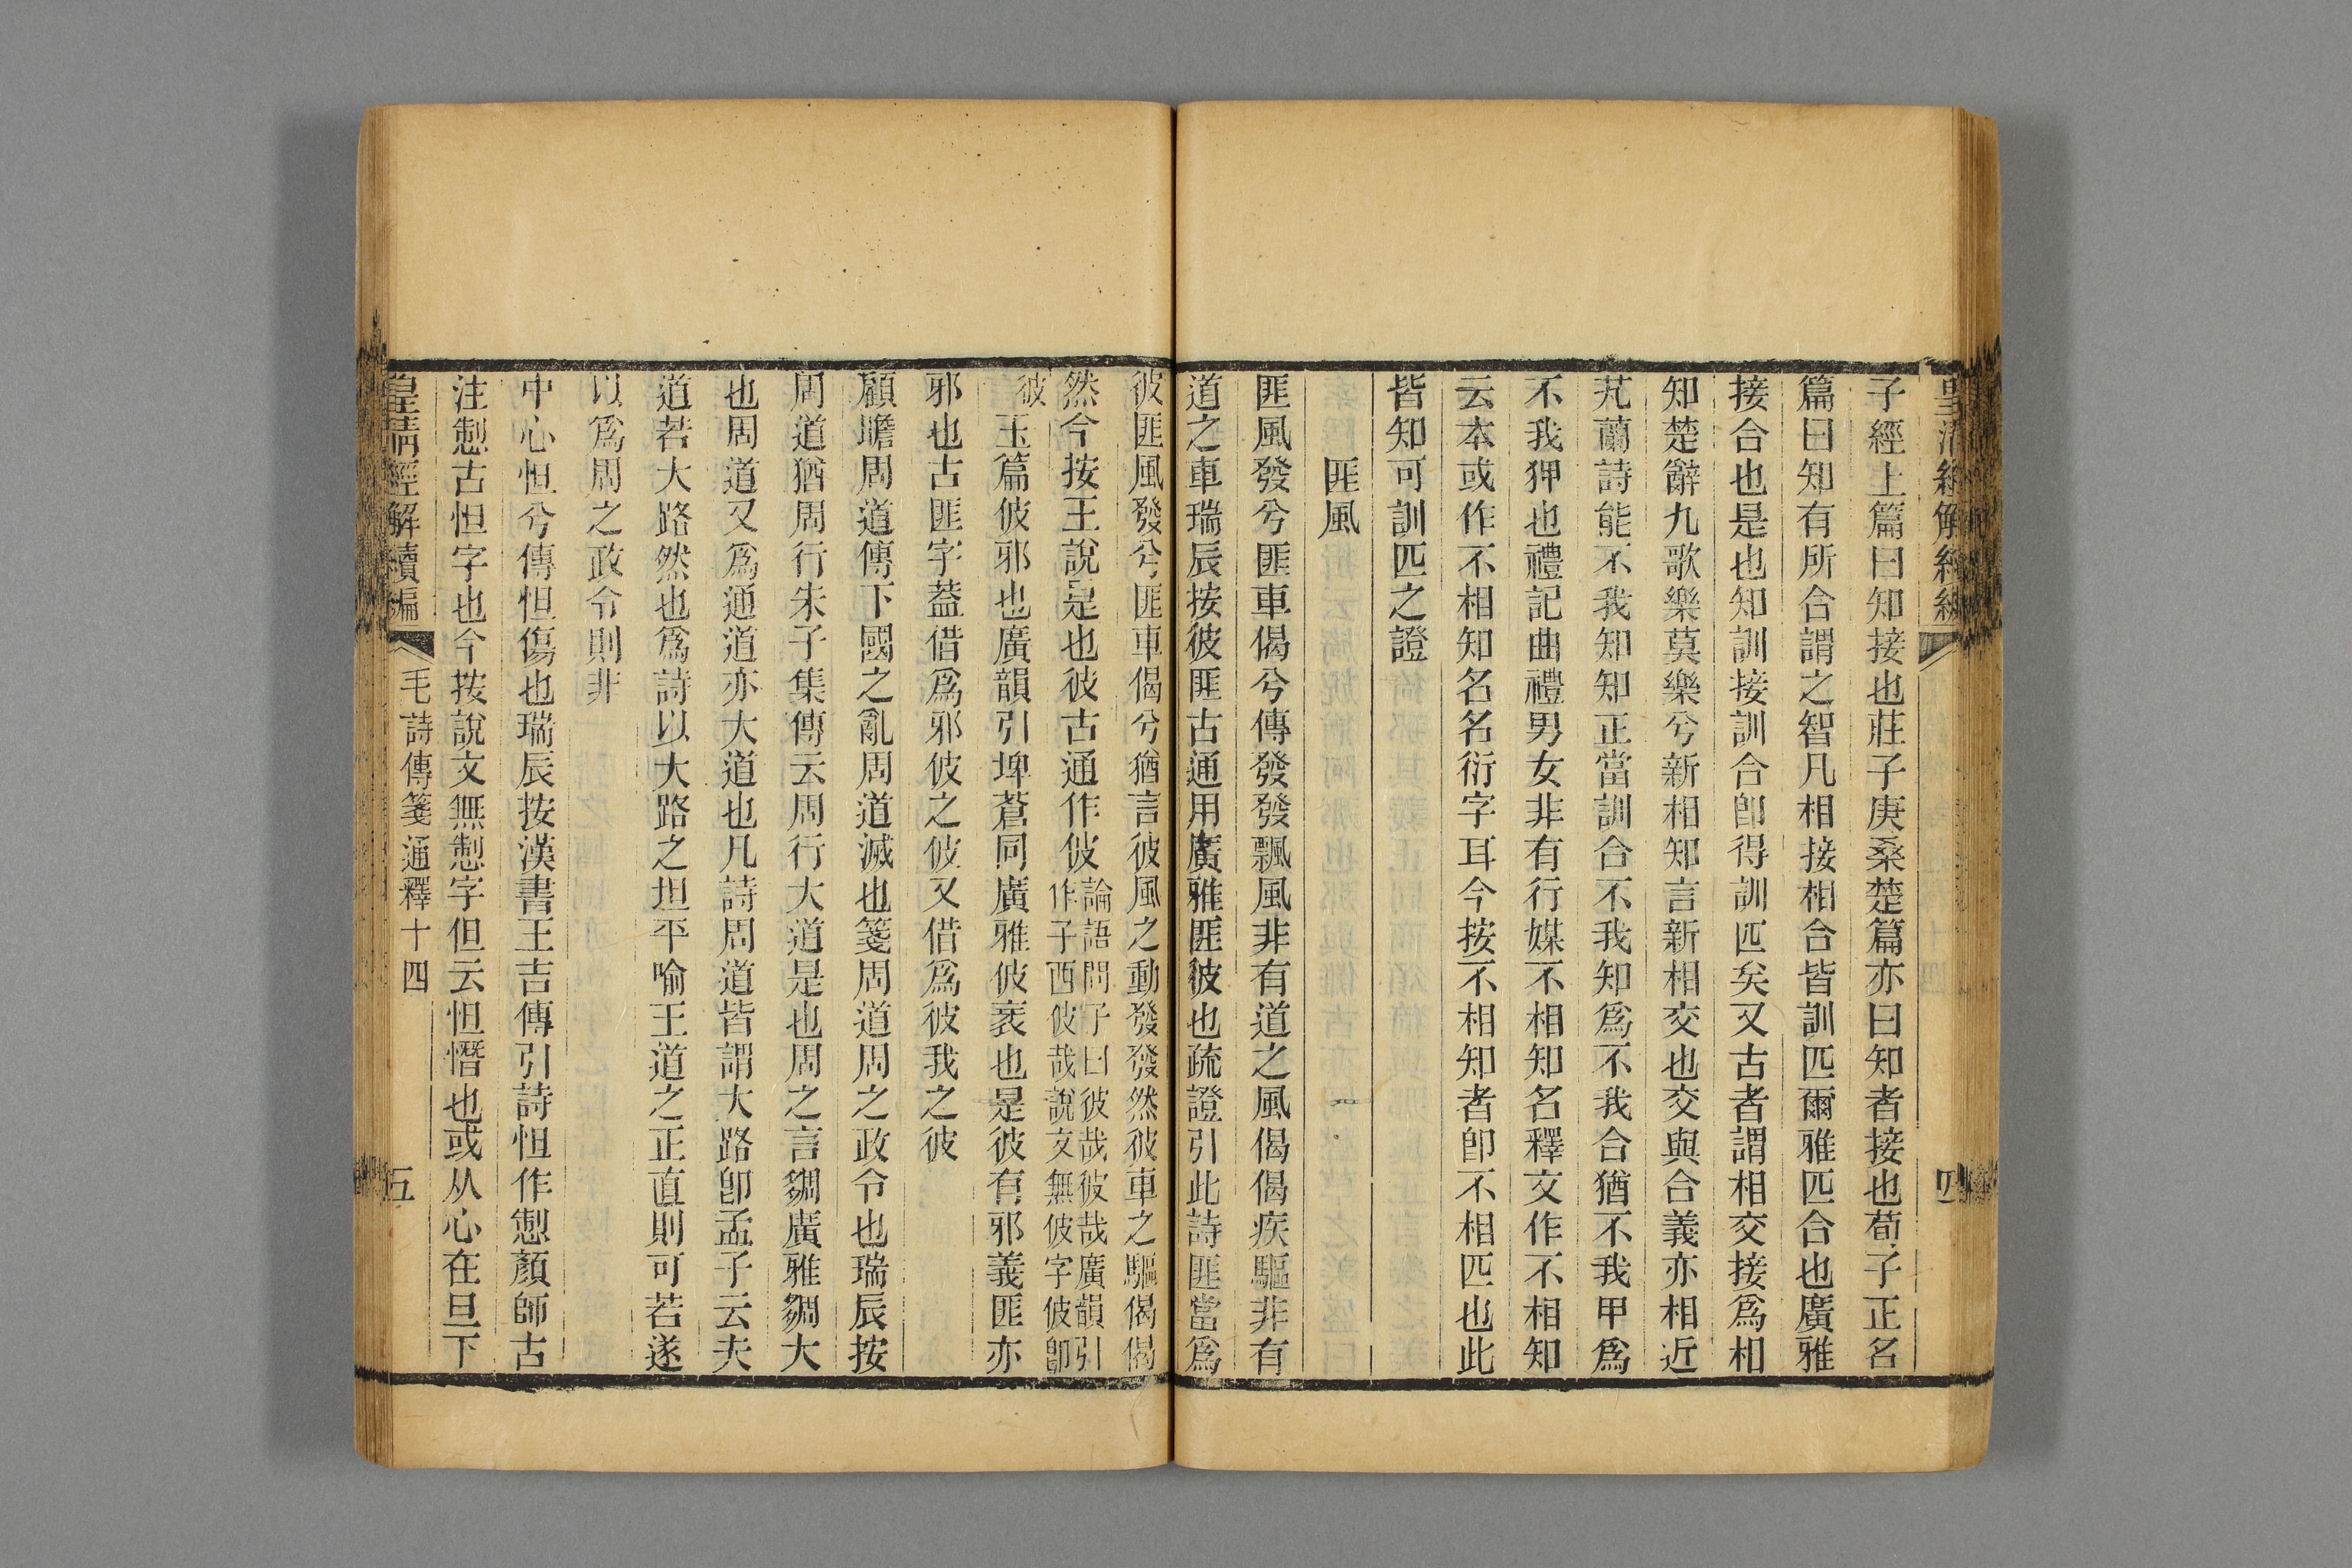 子經上篇曰知接也莊子庚桑楚篇亦曰知者接也荀子正名
篇曰知有所合謂之智凡相接相合皆訓匹爾雅匹合也廣雅
接合也是也知訓接訓合卽得訓匹矣又古者謂相交接爲相
知楚辭九歌樂莫樂兮新相知言新相交也交與合義亦相近
芄蘭詩能不我知知正當訓合不我知爲不我合猶不我甲爲
不我狎也禮記曲禮男女非有行媒不相知名釋文作不相知
云本或作不相知名名衍字耳今按不相知者卽不相匹也此
皆知可訓匹之證
匪風
匪風發兮匪車偈兮傳發發飄風非有道之風偈偈疾驅非有
道之車瑞辰按彼匪古通用廣雅匪彼也疏證引此詩匪當爲
彼匪風發兮匪車偈兮猶言彼風之動發發然彼車之驅偈偈
然今按王說是也彼古通作佊論語問子曰彼哉彼哉廣韻引
作子西佊哉說文無佊字佊卽
彼
玉篇佊邪也廣韻引埤蒼同廣雅佊衺也是彼有邪義匪亦
邪也古匪字葢借爲邪佊之佊又借爲彼我之彼
顧瞻周道傳下國之亂周道滅也箋周道周之政令也瑞辰按
周道猶周行朱子集傳云周行大道是也周之言綢廣雅綢大
也周道又爲通道亦大道也凡詩周道皆謂大路卽孟子云夫
道若大路然也爲詩以大路之坦平喻王道之正直則可若遂
以爲周之政令則非
中心怛兮傳怛傷也瑞辰按漢書王吉傳引詩怛作㤠顏師古
注㤠古怛字也今按說文無㤠字但云怛憯也或从心在旦下
皇清經解續編
毛詩傳箋通釋十四
五